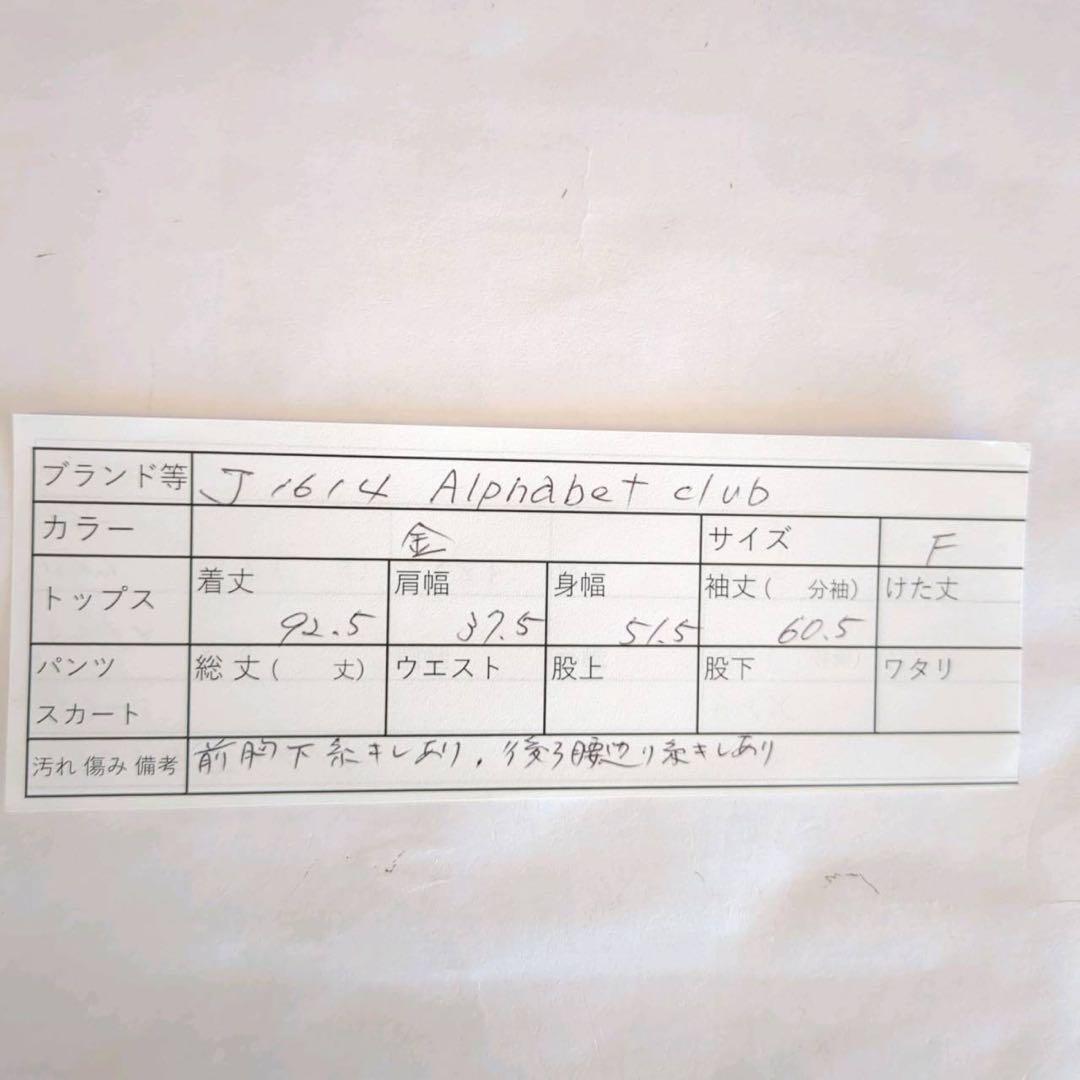 ブランド等 J1614 Alphabet club
カラー 金 サイズ F
トップス 着丈 92.5 肩幅 37.5 身幅 51.5 袖丈( 分袖) 60.5 けた丈
パンツ スカート 総丈( 丈) ウエスト 股上 股下 ワタリ
汚れ 傷み 備考 前胸下糸キレあり、後ろ腰辺り糸キレあり